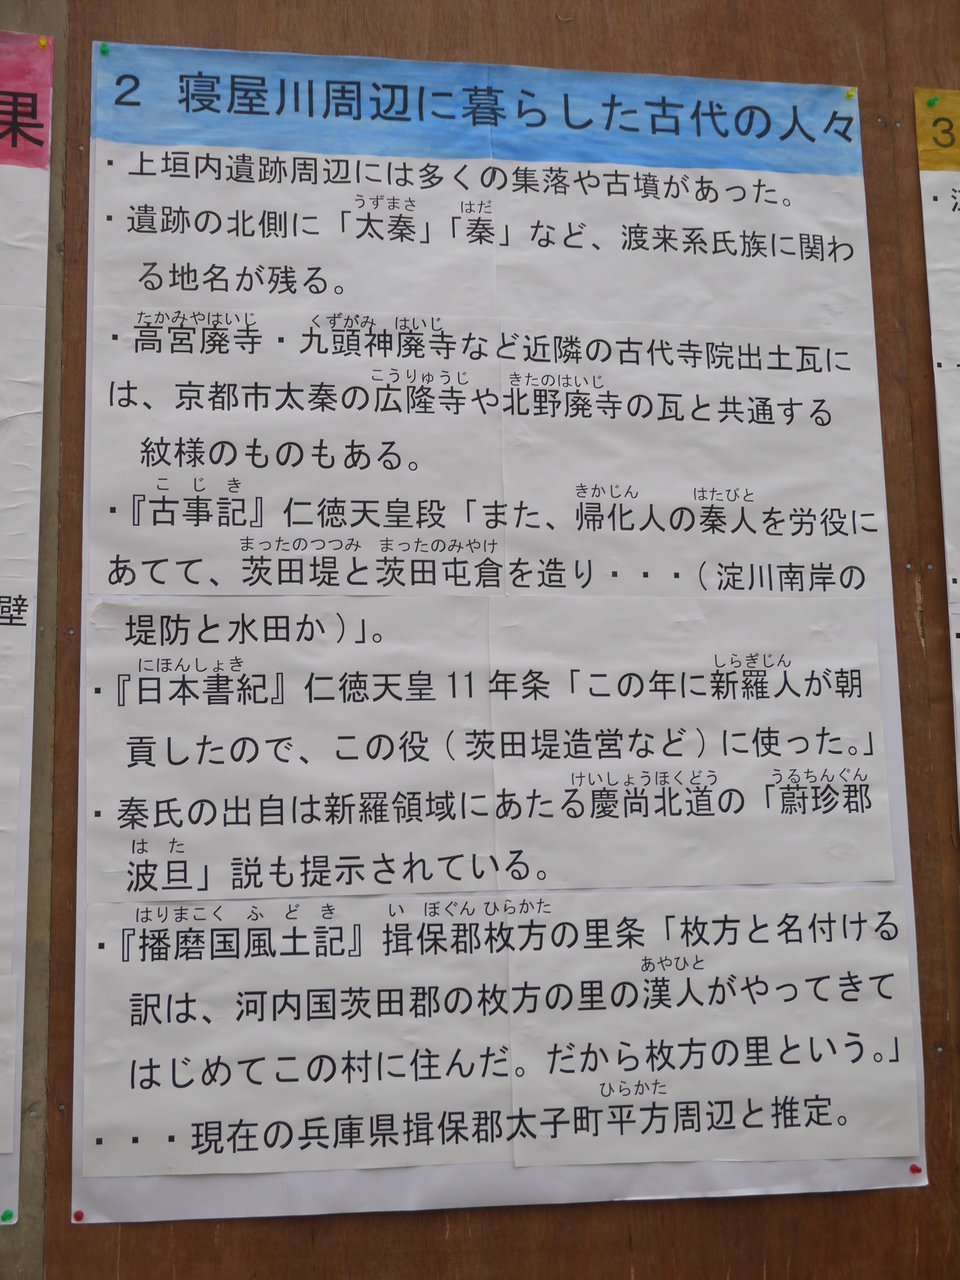 果
壁
2 寝屋川周辺に暮らした古代の人々
・上垣内遺跡周辺には多くの集落や古墳があった。
うずまさ はだ
・遺跡の北側に「太秦」「秦」など、渡来系氏族に関わ
る地名が残る。
たかみやはいじ くずがみ はいじ
・高宮廃寺・九頭神廃寺など近隣の古代寺院出土瓦に
こうりゅうじ きたのはいじ
は、京都市太秦の広隆寺や北野廃寺の瓦と共通する
紋様のものもある。
こ じ き きかじん はたびと
・『古事記』仁徳天皇段「また、帰化人の秦人を労役に
まったのつつみ まったのみやけ
あてて、茨田堤と茨田屯倉を造り・・・(淀川南岸の
堤防と水田か)」。
にほんしょき しらぎじん
・『日本書紀』仁徳天皇11年条「この年に新羅人が朝
貢したので、この役(茨田堤造営など)に使った。」
けいしょうほくどう うるちんぐん
・秦氏の出自は新羅領域にあたる慶尚北道の「蔚珍郡
は た
波旦」説も提示されている。
はりまこく ふ ど き い ぼぐん ひらかた
・『播磨国風土記』揖保郡枚方の里条「枚方と名付ける
あやひと
訳は、河内国茨田郡の枚方の里の漢人がやってきて
はじめてこの村に住んだ。だから枚方の里という。」
ひらかた
・・・現在の兵庫県揖保郡太子町平方周辺と推定。
3